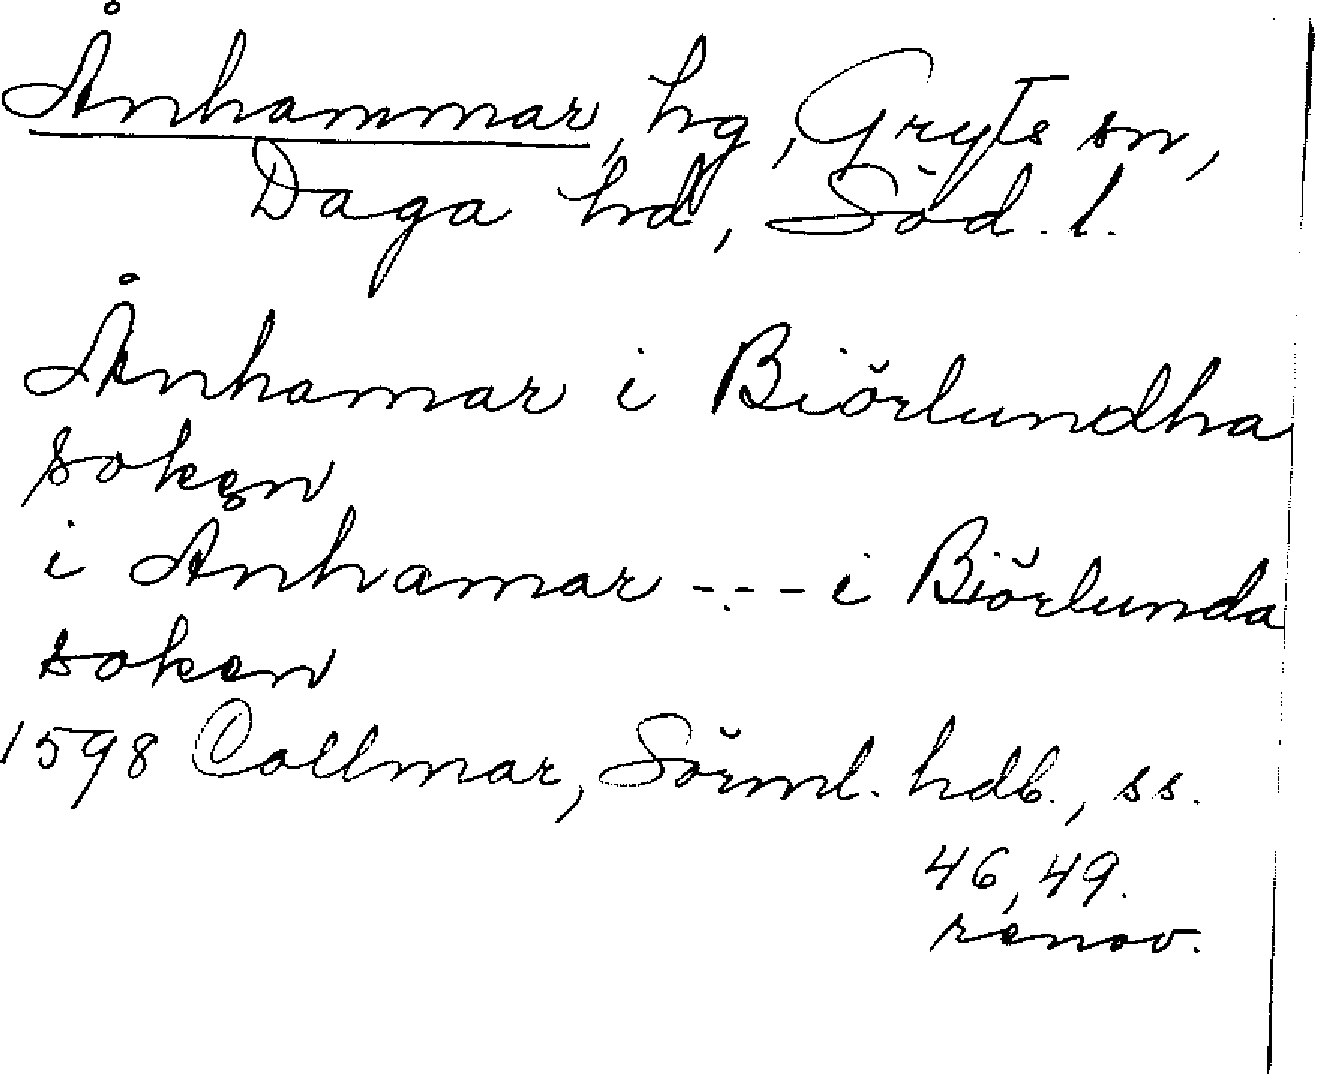 Ånhammar, hg, Gryts sn,
Daga hd, Söd. l.
Ånhamar i Biörlundha
soken
i Ånhamar - - - i Biörlunda
soken
1598 Collmar, Sörml. hdb., ss.
46, 49.
renov.